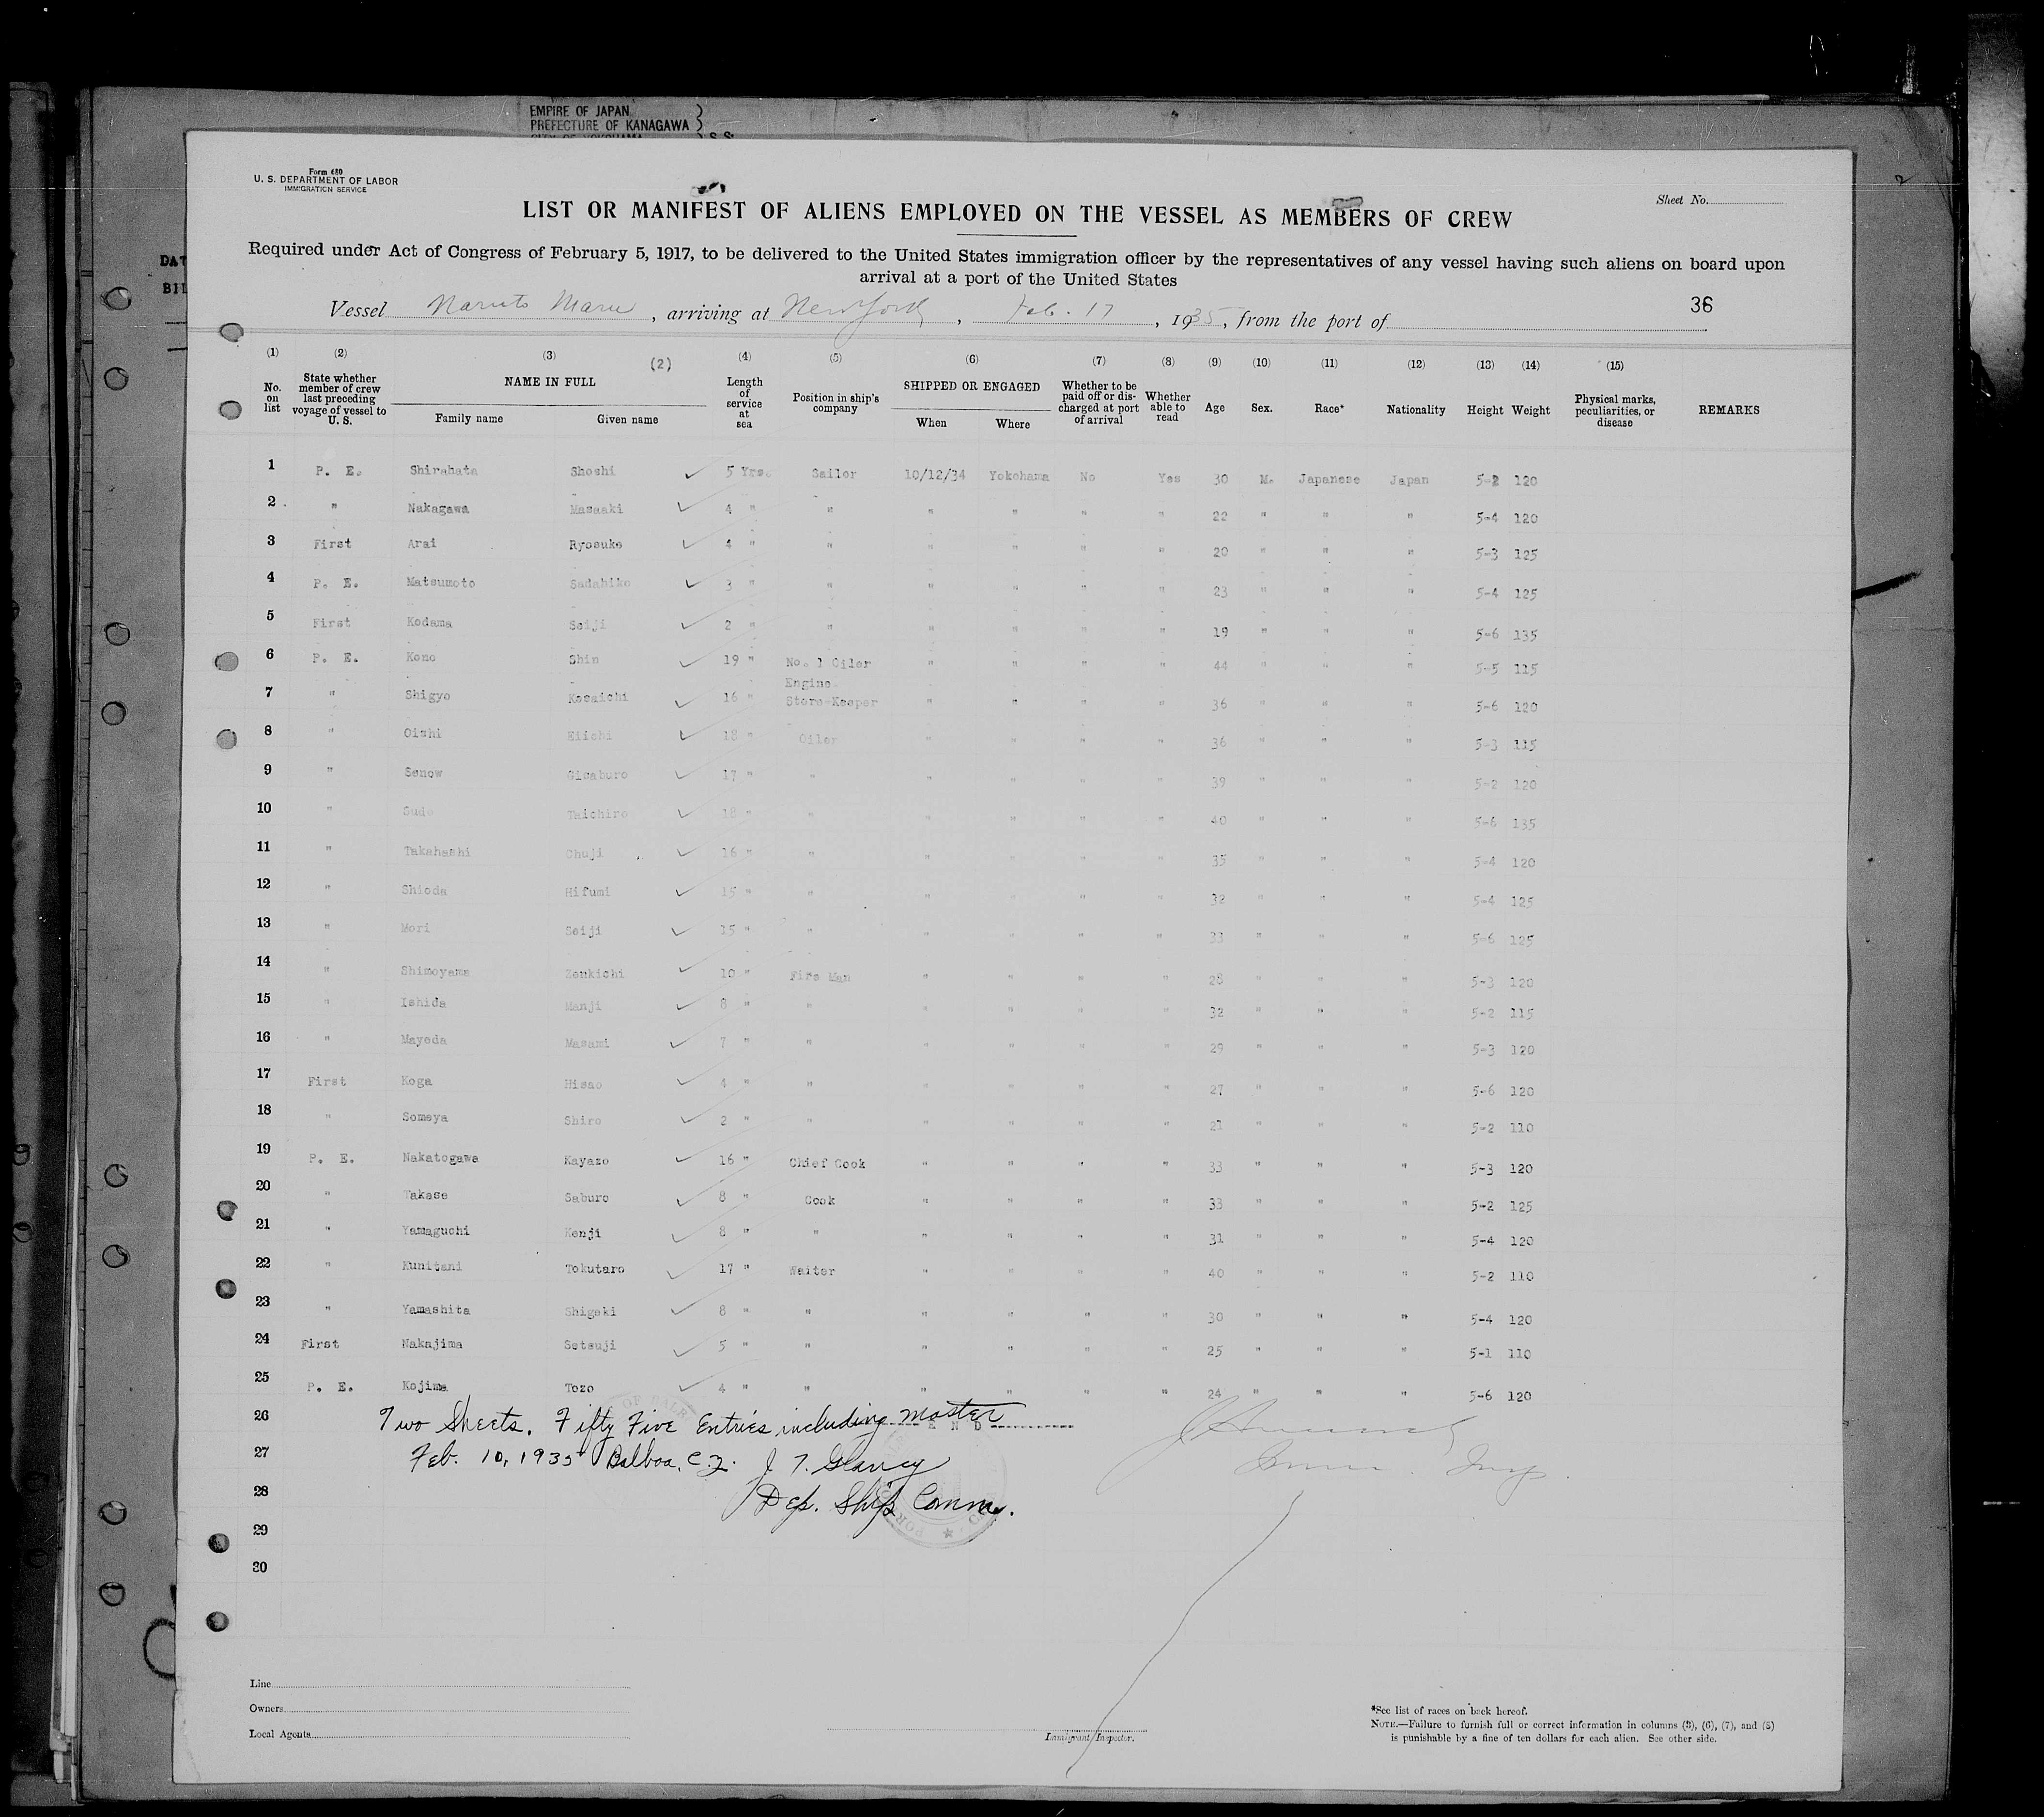 EMPIRE OF JAPAN
PREFECTURE OF KANAGAWA
Form 680
U. S. DEPARTMENT OF LABOR
IMMIGRATION SERVICE
Sheet No.
LIST OR MANIFEST OF ALIENS EMPLOYED ON THE VESSEL AS MEMBERS OF CREW
Required under Act of Congress of February 5, 1917, to be delivered to the United States immigration officer by the representatives of any vessel having such aliens on board upon
arrival at a port of the United States
36
Vessel Naruto Maru, arriving at New York, Feb. 17, 1935, from the port of
(1) (2) (3) (2) (4) (5) (6) (7) (8) (9) (10) (11) (12) (13) (14) (15)
No. on list State whether member of crew last preceding voyage of vessel to U. S. NAME IN FULL Family name Given name Length of service at sea Position in ship's company SHIPPED OR ENGAGED When Where Whether to be paid off or discharged at port of arrival Whether able to read Age Sex. Race* Nationality Height Weight Physical marks, peculiarities, or disease REMARKS
1 P. E. Shirahata Shoshi ✓ 5 Yrs. Sailor 10/12/34 Yokohama No Yes 30 M. Japanese Japan 5-2 120
2 " Nakagawa Masaaki ✓ 4 " " " " " " 22 " " " 5-4 120
3 First Arai Ryosuke ✓ 4 " " " " " " 20 " " " 5-3 125
4 P. E. Matsumoto Sadahiko ✓ 3 " " " " " " 23 " " " 5-4 125
5 First Kodama Seiji ✓ 2 " " " " " " 19 " " " 5-6 135
6 P. E. Kono Shin ✓ 19 " No. 1 Oiler " " " " 44 " " " 5-5 115
7 " Shigyo Kesaichi ✓ 16 " Engine Store-Keeper " " " " 36 " " " 5-6 120
8 " Oishi Eiichi ✓ 18 " Oiler " " " " 36 " " " 5-3 115
9 " Senow Gisaburo ✓ 17 " " " " " " 39 " " " 5-2 120
10 " Sudo Taichiro ✓ 18 " " " " " " 40 " " " 5-6 135
11 " Takahashi Chuji ✓ 16 " " " " " " 35 " " " 5-4 120
12 " Shioda Hifumi ✓ 15 " " " " " " 32 " " " 5-4 125
13 " Mori Seiji ✓ 15 " " " " " " 33 " " " 5-6 125
14 " Shimoyama Zenkichi ✓ 10 " Fire Man " " " " 28 " " " 5-3 120
15 " Ishida Manji ✓ 8 " " " " " " 32 " " " 5-2 115
16 " Mayeda Masami ✓ 7 " " " " " " 29 " " " 5-3 120
17 First Koga Hisao ✓ 4 " " " " " " 27 " " " 5-6 120
18 " Someya Shiro ✓ 2 " " " " " " 21 " " " 5-2 110
19 P. E. Nakatogawa Kayazo ✓ 16 " Chief Cook " " " " 33 " " " 5-3 120
20 " Takase Saburo ✓ 8 " Cook " " " " 33 " " " 5-2 125
21 " Yamaguchi Kenji ✓ 8 " " " " " " 31 " " " 5-4 120
22 " Kunitani Tokutaro ✓ 17 " Waiter " " " " 40 " " " 5-2 110
23 " Yamashita Shigeki ✓ 8 " " " " " " 30 " " " 5-4 120
24 First Nakajima Setsuji ✓ 5 " " " " " " 25 " " " 5-1 110
25 P. E. Kojima Tozo ✓ 4 " " " " " " 24 " " " 5-6 120
26 Two Sheets. Fifty Five Entries including Master END
27 Feb. 10, 1935 Balboa, C.Z. J. T. Glancy
28 Dep. Ship Comm.
29
30
Line
Owners
Local Agents
Immigrant Inspector.
*See list of races on back hereof.
NOTE.—Failure to furnish full or correct information in columns (3), (6), (7), and (8)
is punishable by a fine of ten dollars for each alien. See other side.